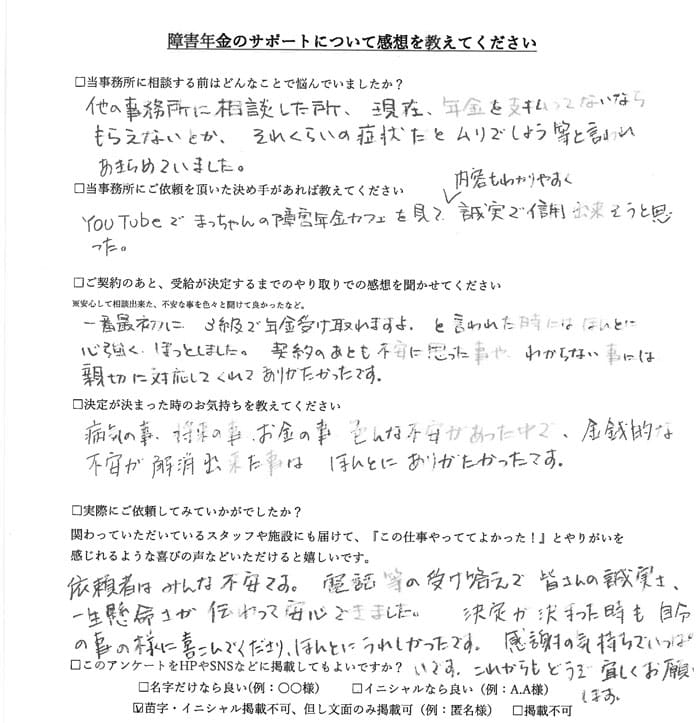 障害年金のサポートについて感想を教えてください
□当事務所に相談する前はどんなことで悩んでいましたか？
他の事務所に相談した所、現在、年金を支払ってないなら
もらえないとか、それくらいの症状だとムリでしょう等と言われ
あきらめていました。
□当事務所にご依頼を頂いた決め手があれば教えてください
内容もわかりやすく
YOUTubeでまっちゃんの障害年金カフェを見て、誠実で信用出来そうと思
った。
□ご契約のあと、受給が決定するまでのやり取りでの感想を聞かせてください
※安心して相談出来た、不安な事を色々と聞けて良かったなど。
一番最初に3級で年金受け取れますよ、と言われた時にはほんとに
心強く、ほっとしました。契約のあとも不安に思った事や、わからない事には
親切に対応してくれてありがたかったです。
□決定が決まった時のお気持ちを教えてください
病気の事、将来の事、お金の事、色んな不安があった中で、金銭的な
不安が解消出来た事はほんとにありがたかったです。
□実際にご依頼してみていかがでしたか？
関わっていただいているスタッフや施設にも届けて、『この仕事やっててよかった！』とやりがいを
感じれるような喜びの声などいただけると嬉しいです。
依頼者はみんな不安です。電話等の受け答えで皆さんの誠実さ、
一生懸命さが伝わって安心できました。決定が決まった時も自分
の事の様に喜こんでくださり、ほんとにうれしかったです。感謝の気持ちでいっぱ
いです。これからもどうぞ宜しくお願い
します。
□このアンケートをHPやSNSなどに掲載してもよいですか？
□名字だけなら良い(例：〇〇様)　□イニシャルなら良い（例：A.A様）
☑苗字・イニシャル掲載不可、但し文面のみ掲載可（例：匿名様）　□掲載不可